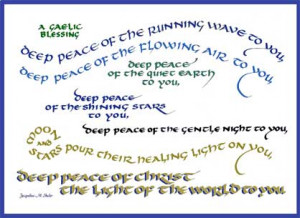 A GAELIC
BLESSING
DEEP PEACE OF THE RUNNING WAVE TO YOU,
DEEP PEACE OF THE FLOWING AIR TO YOU,
DEEP PEACE
OF THE QUIET EARTH
TO YOU,
DEEP PEACE
OF THE SHINING STARS
TO YOU,
DEEP PEACE OF THE GENTLE NIGHT TO YOU,
MOON
AND
STARS POUR THEIR HEALING LIGHT ON YOU,
DEEP PEACE OF CHRIST
THE LIGHT OF THE WORLD TO YOU